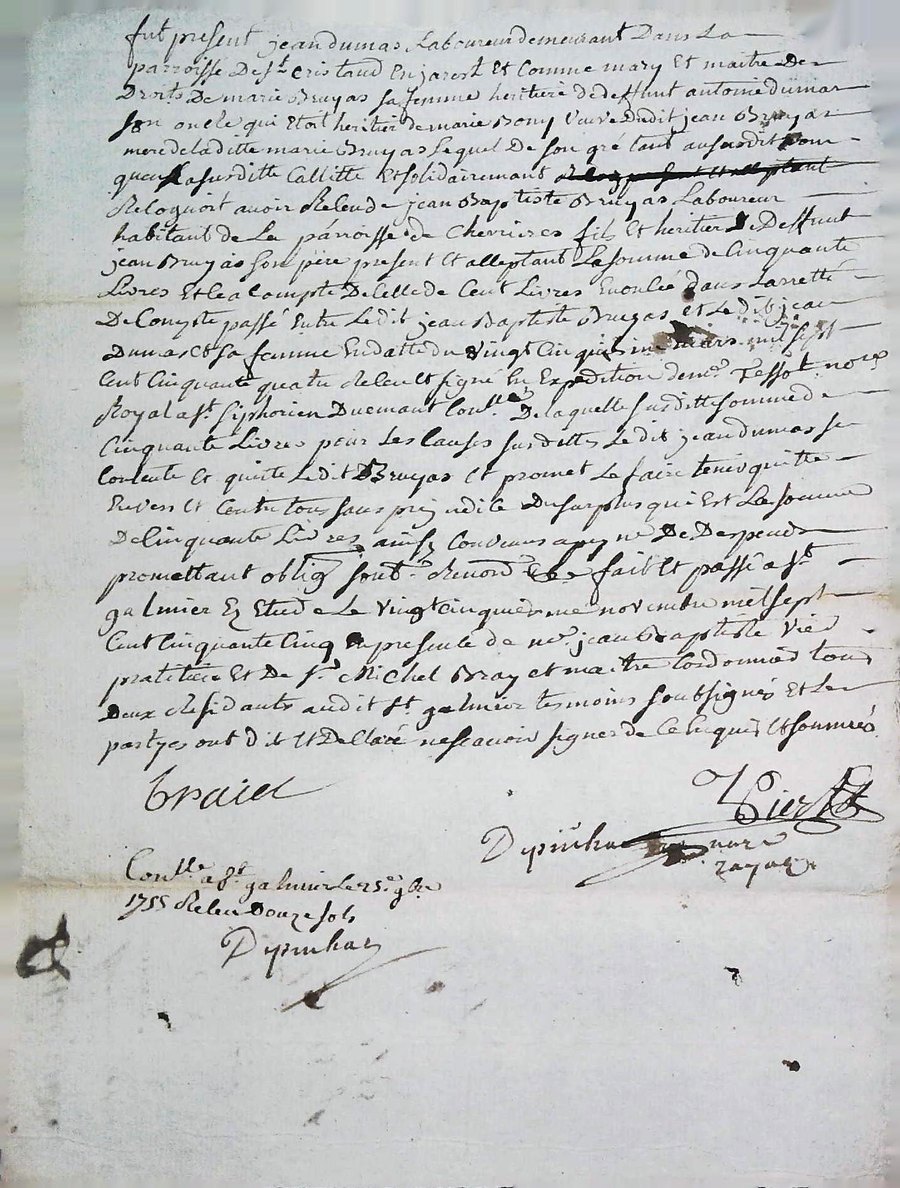 fut present jean dumas Laboureur demeurant Dans La
parroisse De st Cristaud En jarest Et Comme mary Et maitre De
Droits De marie Bruyas sa femme heritiere de deffunt antoine dumas
son oncle qui Etoit heritier de marie Bony Veuve dudit jean Bruyas
mere de la ditte marie Bruyas Lequel De son gré tant au susdit nom
que la susditte Callitte Et solidairemant
Reconnoit avoir Receu de jean Baptiste Bruyas Laboureur
habitant de La parroisse de Chevrieres fils Et heritier De Deffunt
jean Bruyas son pere present Et acceptant La somme de Cinquante
Livres Et Ce a Compte De Celle de Cent Livres Enoncée dans Larretté
De Compte passé Entre Ledit jean Baptiste Bruyas et Ledit jean
Dumas Et sa femme En datte du Vingt Cinquieme mars mil sept
Cent Cinquante quatre Receu Et signé En Expedition de me Tessot nore
Royal a st siphorien Duemant Conllé De laquelle susditte somme de
Cinquante Livres pour Les Causes susdittes Ledit jean dumas se
Contente Et quitte Ledit Bruyas Et promet Le faire tenir quitte
Envers Et Contre tous sans prejudice du surplus qui Est La somme
De Cinquante Livres ainsy Convenu a peyne De Despends
promettant oblig soub. Renon fait Et passé a st
galmier En Etude Le Vingt Cinquieme novembre mil sept
Cent Cinquante Cinq En presence de me jean Baptiste Vier
praticien Et De sr Michel Bray et maitre Cordonnier tous
Deux Residants audit st galmier temoins soubsignés Et Les
partyes ont dit Et Declaré ne scavoir signer de Ce Enquis Et sommés
Braiel
Vier
Depinhac nore
royal
Conllé a st galmier le 25e 9bre
1755 Receu Douze sols
Depinhac